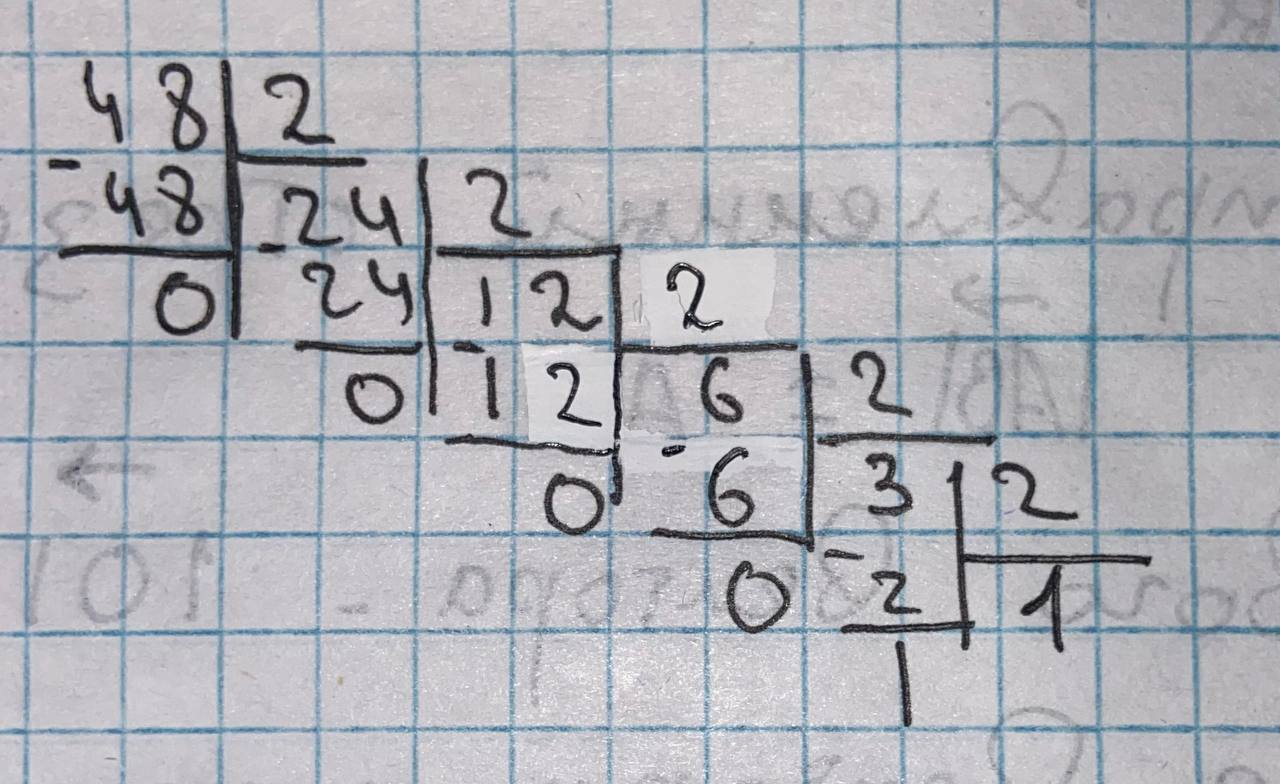 48 2
- 48 24 2
0 - 24 12 2
0 - 12 6 2
0 - 6 3 2
0 - 2 1
1